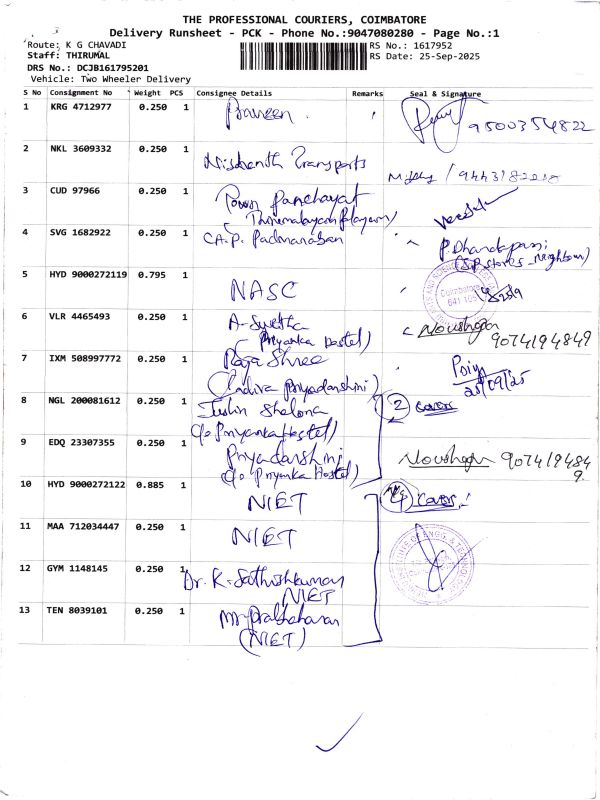 THE PROFESSIONAL COURIERS, COIMBATORE
Delivery Runsheet - PCK - Phone No.:9047080280 - Page No.:1
Route: K G CHAVADI
RS No.: 1617952
Staff: THIRUMAL
RS Date: 25-Sep-2025
DRS No.: DCJB161795201
Vehicle: Two Wheeler Delivery
S No Consignment No Weight PCS Consignee Details Remarks Seal & Signature
1 KRG 4712977 0.250 1 Praveen 9500354822
2 NKL 3609332 0.250 1 Nishanth Transports
3 CUD 97966 0.250 1 Town Panchayat
4 SVG 1682922 0.250 1 CA.P. Padmanaban P. Dhandapani
(S.P. Stores - Neighbour)
5 HYD 9000272119 0.795 1 NASC
Coimbatore
641 105
6 VLR 4465493 0.250 1 A. Swetha
(Priyanka Hostel) Noushogn 9074194849
7 IXM 508997772 0.250 1 Raja Shree
25/09/25
8 NGL 200081612 0.250 1 Justin Shalona 2 covers
(c/o Priyanka Hostel)
9 EDQ 23307355 0.250 1 Priyadarshini Noushogn 9074194849
(c/o Priyanka Hostel)
10 HYD 9000272122 0.885 1 NIET 4 covers
11 MAA 712034447 0.250 1 NIET
12 GYM 1148145 0.250 1 Dr. K. Sathishkumar
NIET
13 TEN 8039101 0.250 1 Mr. Prabhaharan
(NIET)